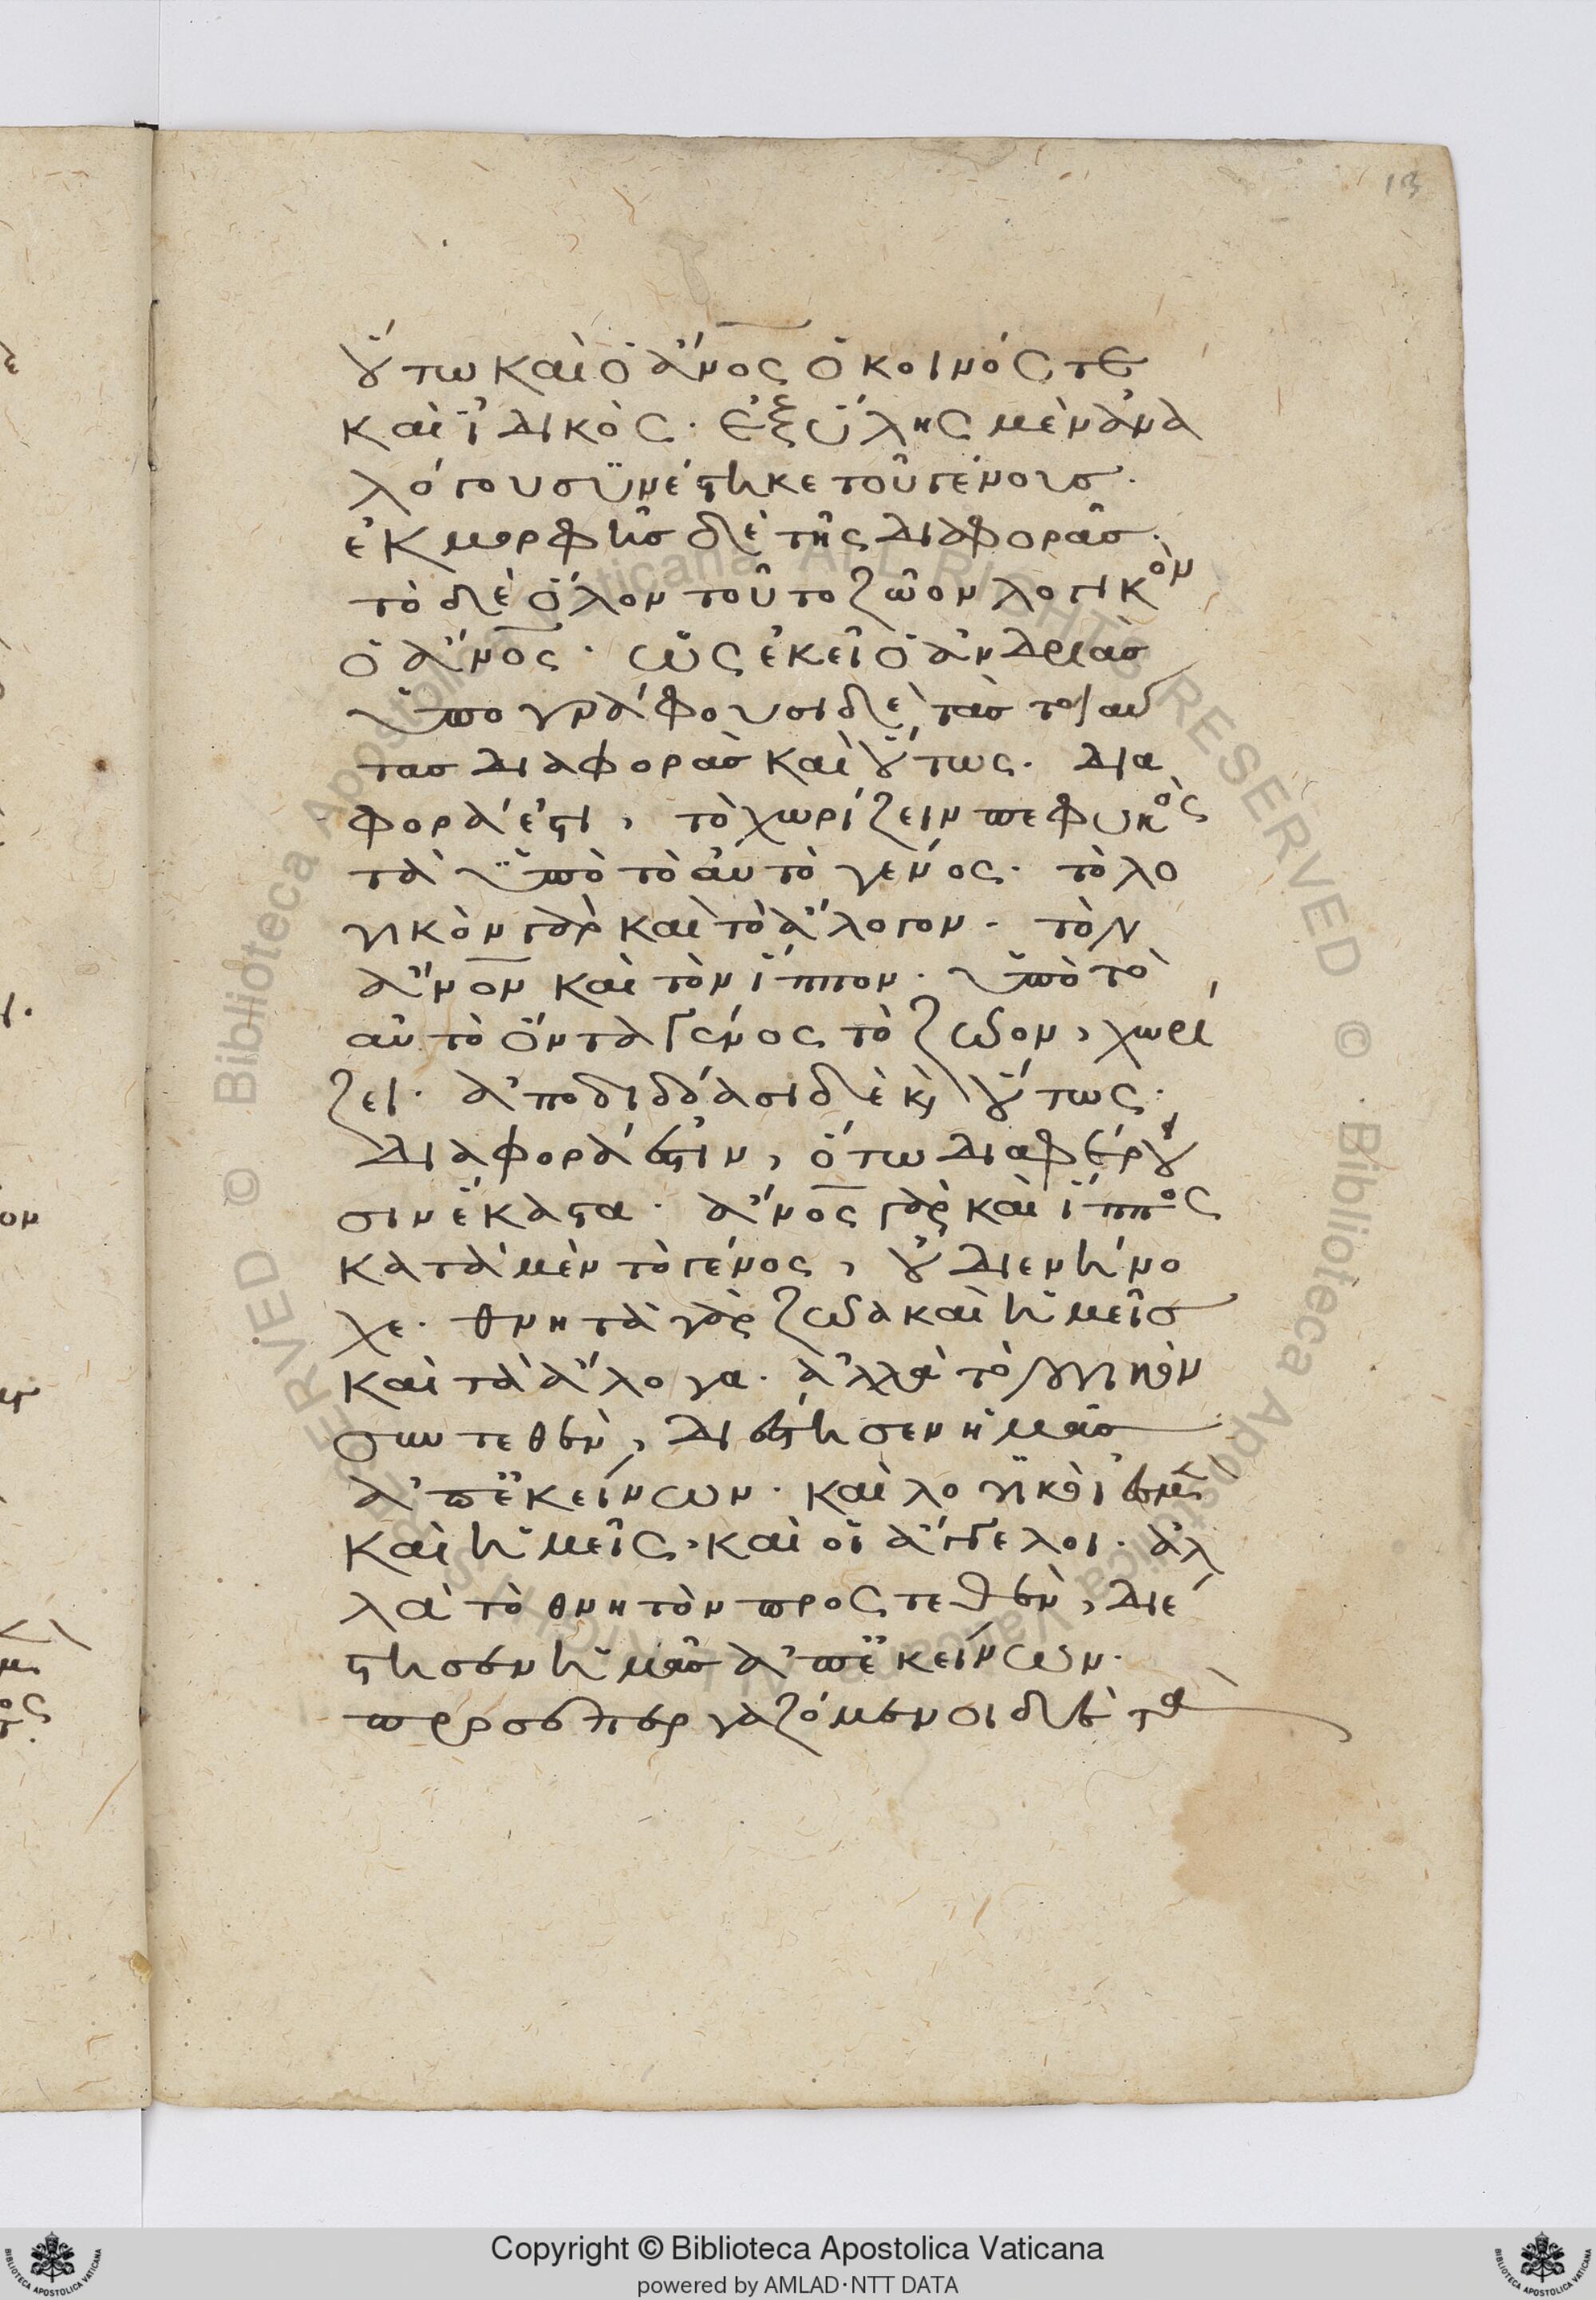 13
οὕτω καὶ ὁ ἄνος ὁ κοινός τε
καὶ ἰδικὸς. ἐξ ὕλης μὲν ἀνα
λόγου συνέστηκε τοῦ γένους.
ἐκ μορφῆς δὲ τῆς διαφορᾶς.
τὸ δὲ ὅλον τοῦτο ζῶον λογικὸν
ὁ ἄνος. ὡς ἐκεῖ ὁ ἀνδριὰς
ὑπογράφουσι δὲ τὰς τοιαύ
τας διαφορὰς καὶ οὕτως. δια
φορά ἐστι, τὸ χωρίζειν πεφυκὸς
τὰ ὑπὸ τὸ αὐτὸ γένος. τὸ λο
γικὸν γὰρ καὶ τὸ ἄλογον. τὸν
ἄνον καὶ τὸν ἵππον. ὑπὸ τὸ
αὐτὸ ὄντα γένος τὸ ζῶον, χωρί
ζει. ἀποδιδόασι δὲ κ οὕτως.
διαφορά ἐστιν, ὅτω διαφέρου
σιν ἕκαστα. ἄνος γὰρ καὶ ἵππος
κατὰ μὲν τὸ γένος, οὐ διενήνο
χε. θνητὰ γὰρ ζῶα καὶ ἡμεῖς
καὶ τὰ ἄλογα. ἀλλὰ τὸ λογικὸν
συντεθὲν, διέστησεν ἡμᾶς
ἀπ ἐκείνων. καὶ λογικοί ἐσμεν
καὶ ἡμεῖς, καὶ οἱ ἄγγελοι. ἀλ
λὰ τὸ θνητὸν προςτεθὲν, διέ
στησεν ἡμᾶς ἀπ ἐκείνων.
προσεπεργαζόμενοι δὲ τὰ
Copyright © Biblioteca Apostolica Vaticana
powered by AMLAD·NTT DATA